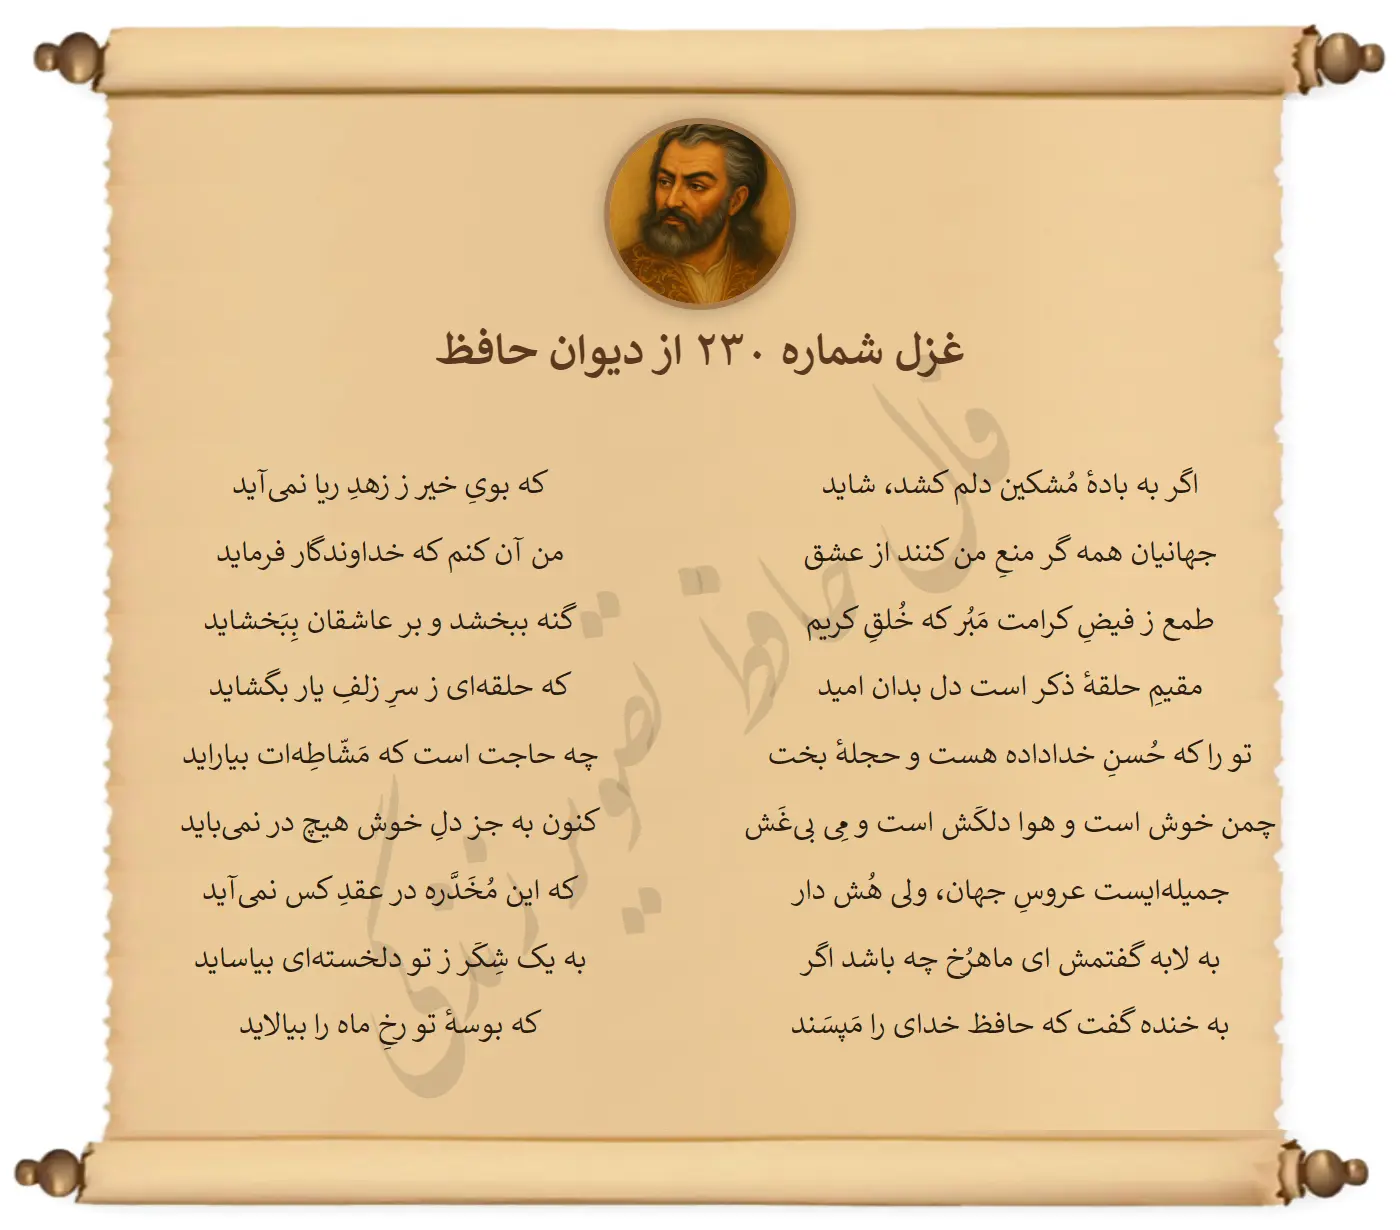 غزل شماره ۲۳۰ از دیوان حافظ
اگر به بادهٔ مُشکین دلم کشد، شاید که بویِ خیر ز زهدِ ریا نمی‌آید
جهانیان همه گر منعِ من کنند از عشق من آن کنم که خداوندگار فرماید
طمع ز فیضِ کرامت مَبُر که خُلقِ کریم گنه ببخشد و بر عاشقان بِبَخشاید
مقیمِ حلقهٔ ذکر است دل بدان امید که حلقه‌ای ز سرِ زلفِ یار بگشاید
تو را که حُسنِ خداداده هست و حجلهٔ بخت چه حاجت است که مَشّاطِه‌ات بیاراید
چمن خوش است و هوا دلکَش است و مِی بی‌غَش کنون به جز دلِ خوش هیچ در نمی‌باید
جمیله‌ایست عروسِ جهان، ولی هُش دار که این مُخَدَّره در عقدِ کس نمی‌آید
به لابه گفتمش ای ماهرُخ چه باشد اگر به یک شِکَر ز تو دلخسته‌ای بیاساید
به خنده گفت که حافظ خدای را مَپِسَند که بوسهٔ تو رخِ ماه را بیالاید
فال حافظ تصویر زندگی